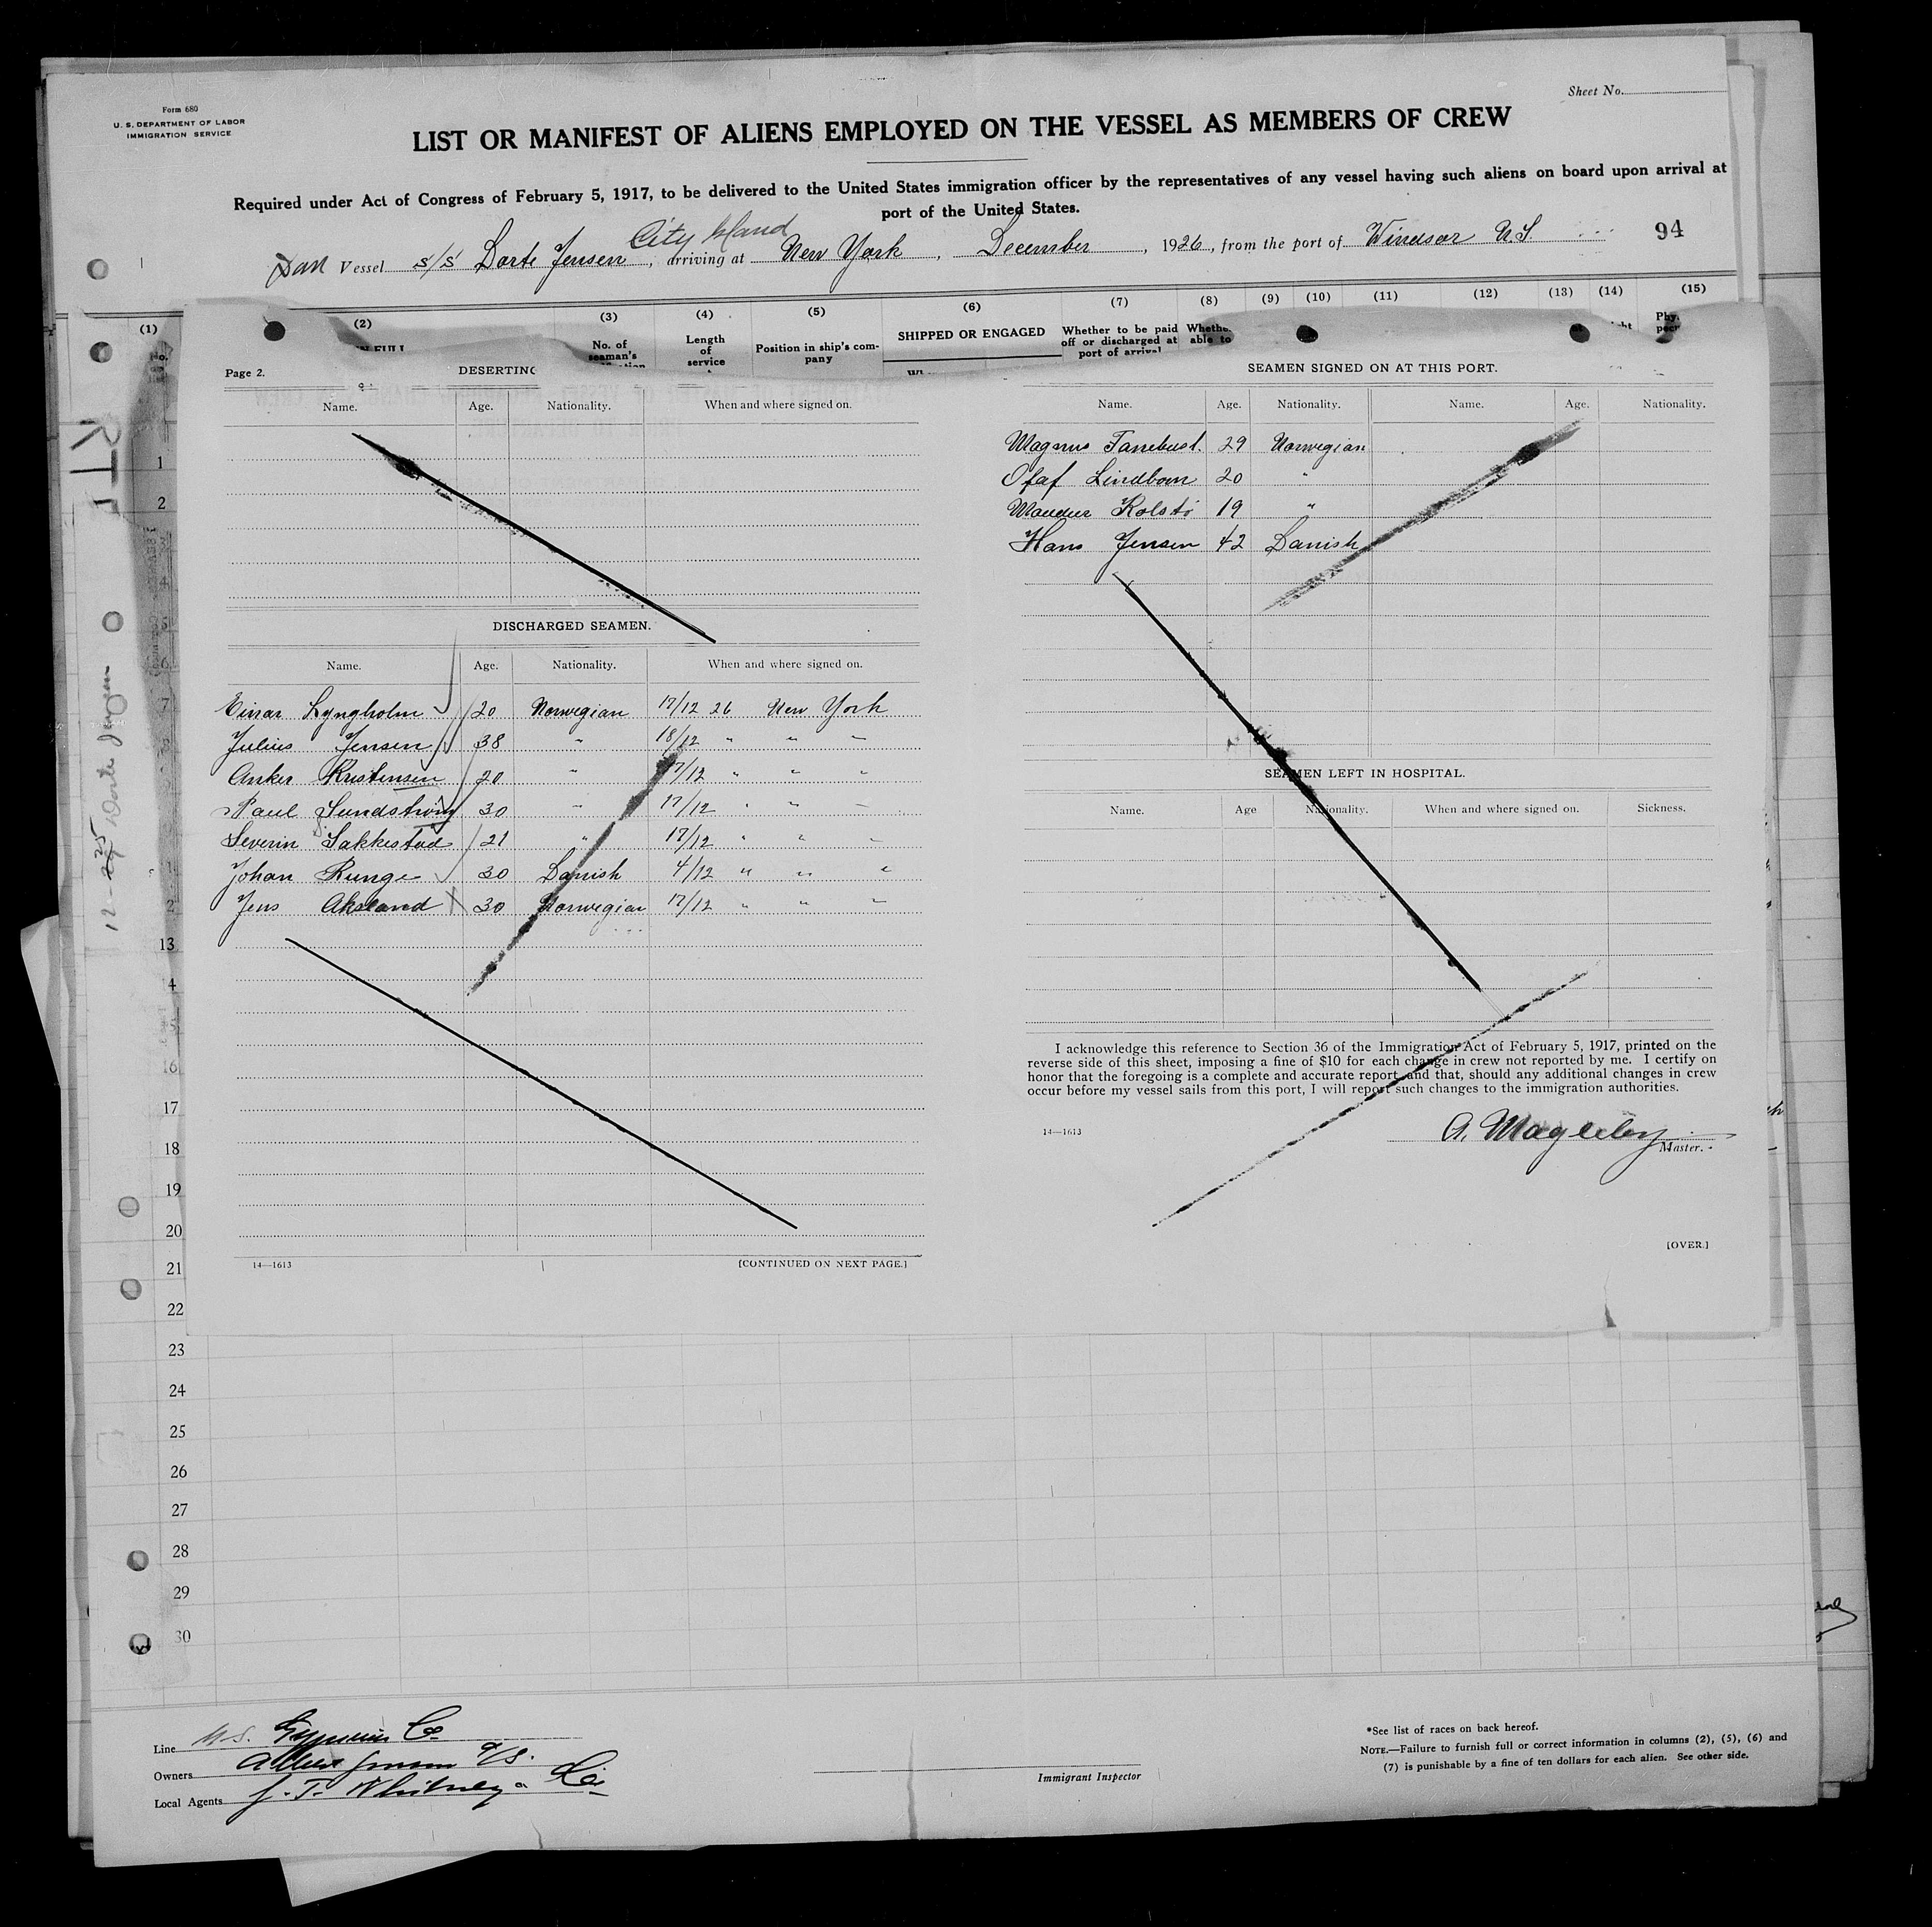 Form 680
U. S. DEPARTMENT OF LABOR
IMMIGRATION SERVICE
Sheet No.
LIST OR MANIFEST OF ALIENS EMPLOYED ON THE VESSEL AS MEMBERS OF CREW
Required under Act of Congress of February 5, 1917, to be delivered to the United States immigration officer by the representatives of any vessel having such aliens on board upon arrival at
port of the United States.
City Island
Dan Vessel s/s Dorte Jensen, arriving at New York, December, 1926, from the port of Windsor N.S 94
(1) (2) (3) (4) (5) (6) (7) (8) (9) (10) (11) (12) (13) (14) (15)
No. of seaman's
Length of service
Position in ship's company
SHIPPED OR ENGAGED
Whether to be paid off or discharged at port of arrival
able to
Page 2.
DESERTING
Name. Age. Nationality. When and where signed on.
DISCHARGED SEAMEN.
Name. Age. Nationality. When and where signed on.
Einar Lyngholm 20 Norwegian 17/12 26 New York
Julius Jensen 38 " 18/12 " " "
Anker Kristensen 20 " 17/12 " " "
Paul Sundström 30 " 17/12 " " "
Severin Sakkestad 21 " 17/12 " " "
Johan Runge 30 Danish 4/12 " " "
Jens Aksland 30 Norwegian 17/12 " " "
14—1613 [CONTINUED ON NEXT PAGE.]
SEAMEN SIGNED ON AT THIS PORT.
Name. Age. Nationality. Name. Age. Nationality.
Magnus 29 Norwegian
Olaf Lindbom 20 "
Kolstö 19 "
Hans Jensen 42 Danish
SEAMEN LEFT IN HOSPITAL.
Name. Age Nationality. When and where signed on. Sickness.
I acknowledge this reference to Section 36 of the Immigration Act of February 5, 1917, printed on the
reverse side of this sheet, imposing a fine of $10 for each change in crew not reported by me. I certify on
honor that the foregoing is a complete and accurate report, and that, should any additional changes in crew
occur before my vessel sails from this port, I will report such changes to the immigration authorities.
14—1613
A. Magleby
Master.
[OVER.]
12-25 Dorte Jensen
1
2
13
14
15
16
17
18
19
20
21
22
23
24
25
26
27
28
29
30
Line U.S. Gypsum Co
Owners Albert Jensen A/S.
Local Agents J. T. Whitney & Co
Immigrant Inspector
*See list of races on back hereof.
NOTE.—Failure to furnish full or correct information in columns (2), (5), (6) and
(7) is punishable by a fine of ten dollars for each alien. See other side.